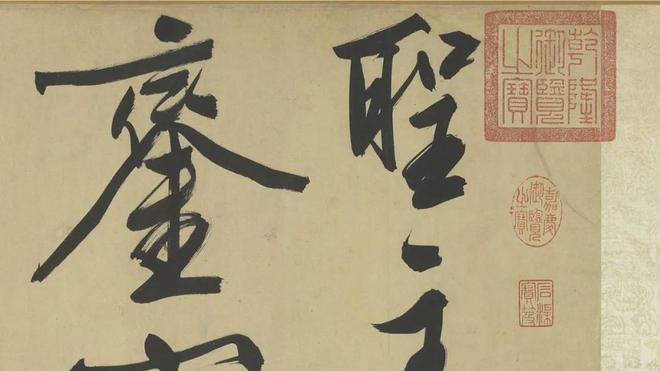 乾隆
御覽
之寶
嘉慶
御覽
之寶
石渠
寶笈
聖主